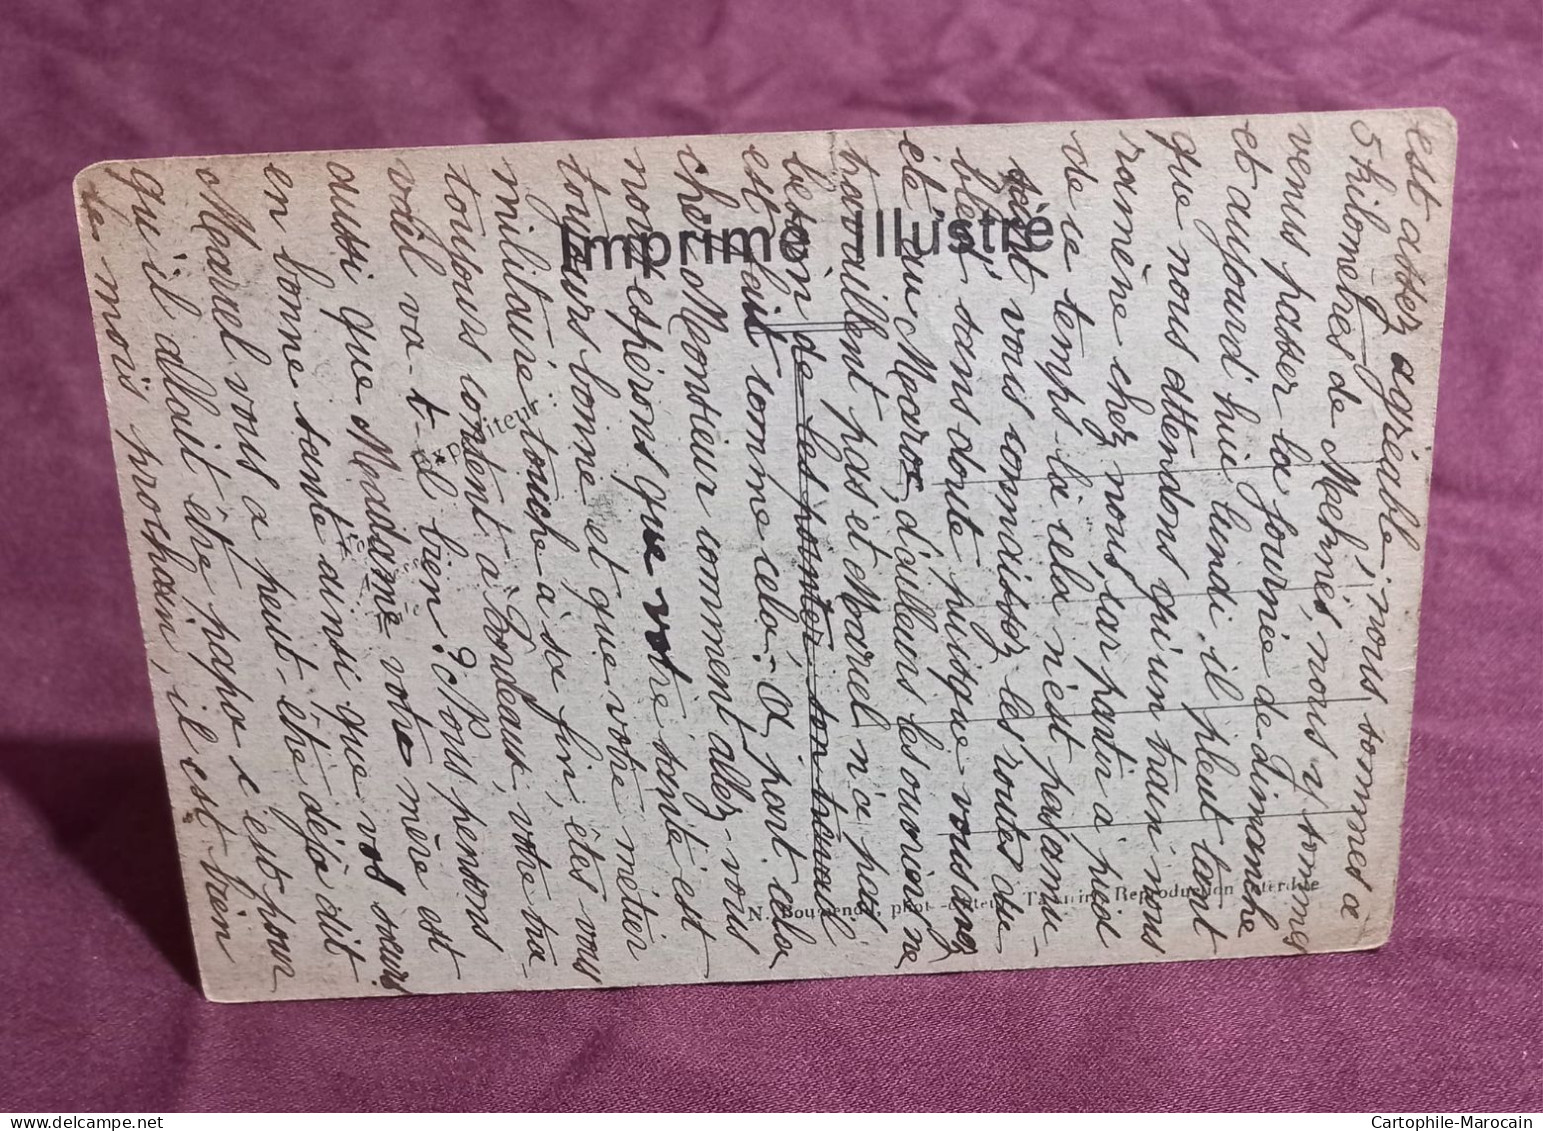 est assez agréable; nous sommes à
5 kilomètres de Meknès, nous y sommes
venus passer la journée de dimanche
et aujourd'hui lundi il pleut tant
que nous attendons qu'un train nous
ramène chez nous, car partir à pied
de ce temps là cela n'est pas amu-
sant vous connaissez les routes du
bled sans doute puisque vous avez
été au Maroc, d'ailleurs les ouvriers ne
travaillent pas et Marcel n'a pas
besoin de les pointer, son travail
est fait comme cela. À part cela
cher Monsieur comment allez-vous
nous espérons que votre santé est
toujours bonne et que votre métier
militaire touche à sa fin, êtes vous
toujours content à Bordeaux, votre tra-
vail va-t-il bien? Nous pensons
aussi que Madame votre mère est
en bonne santé ainsi que vos sœurs.
Marcel vous a peut-être déjà dit
qu'il allait être papa c'est pour
le mois prochain, il est bien
Imprimé Illustré
Expéditeur :
N. phot.-éditeur, Reproduction interdite
Cartophile-Marocain